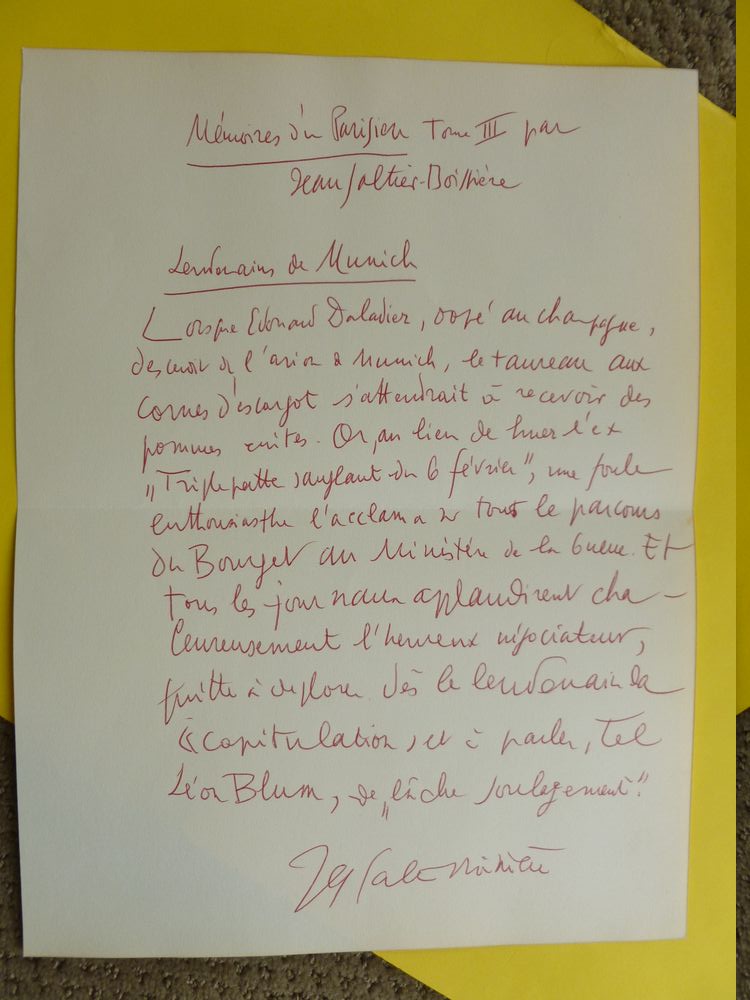 Mémoires d'un Parisien Tome III par
Jean Galtier-Boissière
Lendemains de Munich
Lorsque Edouard Daladier, dopé au champagne,
descendit de l'avion de Munich, le taureau aux
cornes d'escargot s'attendrait à recevoir des
pommes cuites. Or, au lieu de huer l'ex
„Triplepatte sanglant du 6 février", une foule
enthousiaste l'acclama sur tout le parcours
du Bourget au Ministère de la Guerre. Et
tous les journaux applaudirent cha-
leureusement l'heureux négociateur,
quitte à déplorer dès le lendemain sa
«capitulation, et à parler, tel
Léon Blum, de „lâche soulagement".